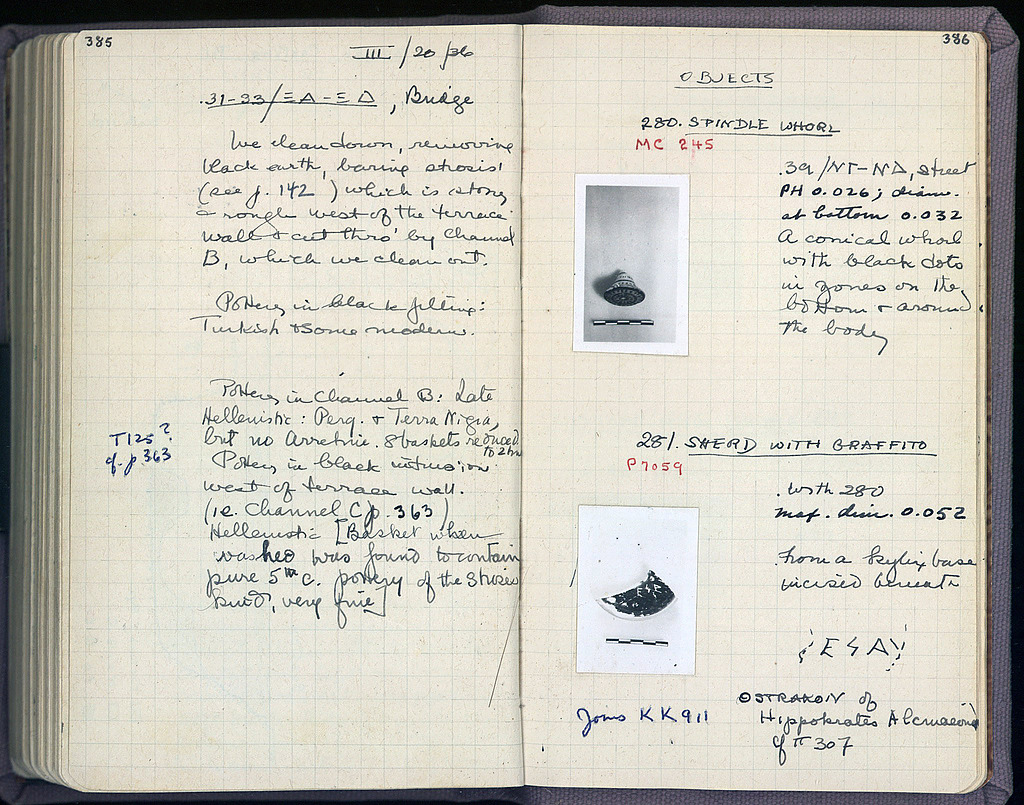 385
III/20/36
.31-33/ΞΑ-ΞΔ, Bridge
We clean down, removing
black earth, baring strosis
(see p. 142) which is stony
& rough west of the terrace
wall & cut thro' by Channel
B, which we clean out.
Pottery in black filling:
Turkish & some modern.
Pottery in Channel B: Late
Hellenistic: Perg. & Terra Nigra,
but no Arretine. 8 baskets reduced
to 2 tins
T125?
cf. p. 363
Pottery in black intrusion
west of terrace wall.
(i.e. Channel C p. 363)
Hellenistic [Basket when
washed was found to contain
pure 5th c. pottery of the Stroses
kind, very fine]
386
OBJECTS
280. SPINDLE WHORL
MC 245
.39/ΝΓ-ΝΔ, street
PH 0.026; diam.
at bottom 0.032
A conical whorl
with black dots
in zones on the
bottom & around
the body
281. SHERD WITH GRAFFITO
P7059
.With 280
max. dim. 0.052
from a kylix base
incised beneath
ΕϟΑ
OSTRAKON of
Hippokrates Alcmaeoni
cf π 307
Joins KK 911